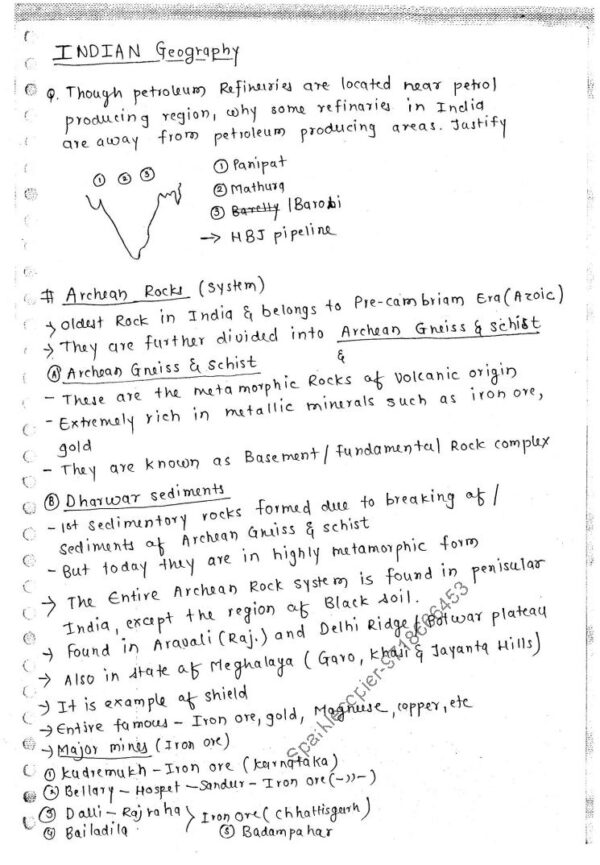 INDIAN Geography
Q. Though petroleum Refineries are located near petrol
producing region, why some refinaries in India
are away from petroleum producing areas. Justify
① ② ③
① Panipat
② Mathura
③ Barelly / Barobi
→ HBJ pipeline
# Archean Rocks (System)
→ Oldest Rock in India & belongs to Pre-cambriam Era (Azoic)
→ They are further divided into Archean Gneiss & schist
&
Ⓐ Archean Gneiss & Schist
- These are the metamorphic Rocks of volcanic origin
- Extremely rich in metallic minerals such as iron ore,
gold
- They are known as Basement / fundamental Rock complex
Ⓑ Dharwar sediments
- 1st Sedimentory rocks formed due to breaking of /
sediments of Archean Gneiss & schist
- But today they are in highly metamorphic form
→ The Entire Archean Rock system is found in penisular
India, except the region of Black soil.
→ Found in Aravali (Raj.) and Delhi Ridge / plateau
→ Also in state of Meghalaya (Garo, Khasi & Jayanta Hills)
→ It is example of shield
→ Entire famous - Iron ore, gold, copper, etc
→ Major mines (Iron ore)
① Kudremukh - Iron ore (Karnataka)
② Bellary - Hospet - Sandur - Iron ore (-〃-)
③ Dalli - Rajraha } Iron ore (Chhattisgarh)
④ Bailadila
⑤ Badampahar